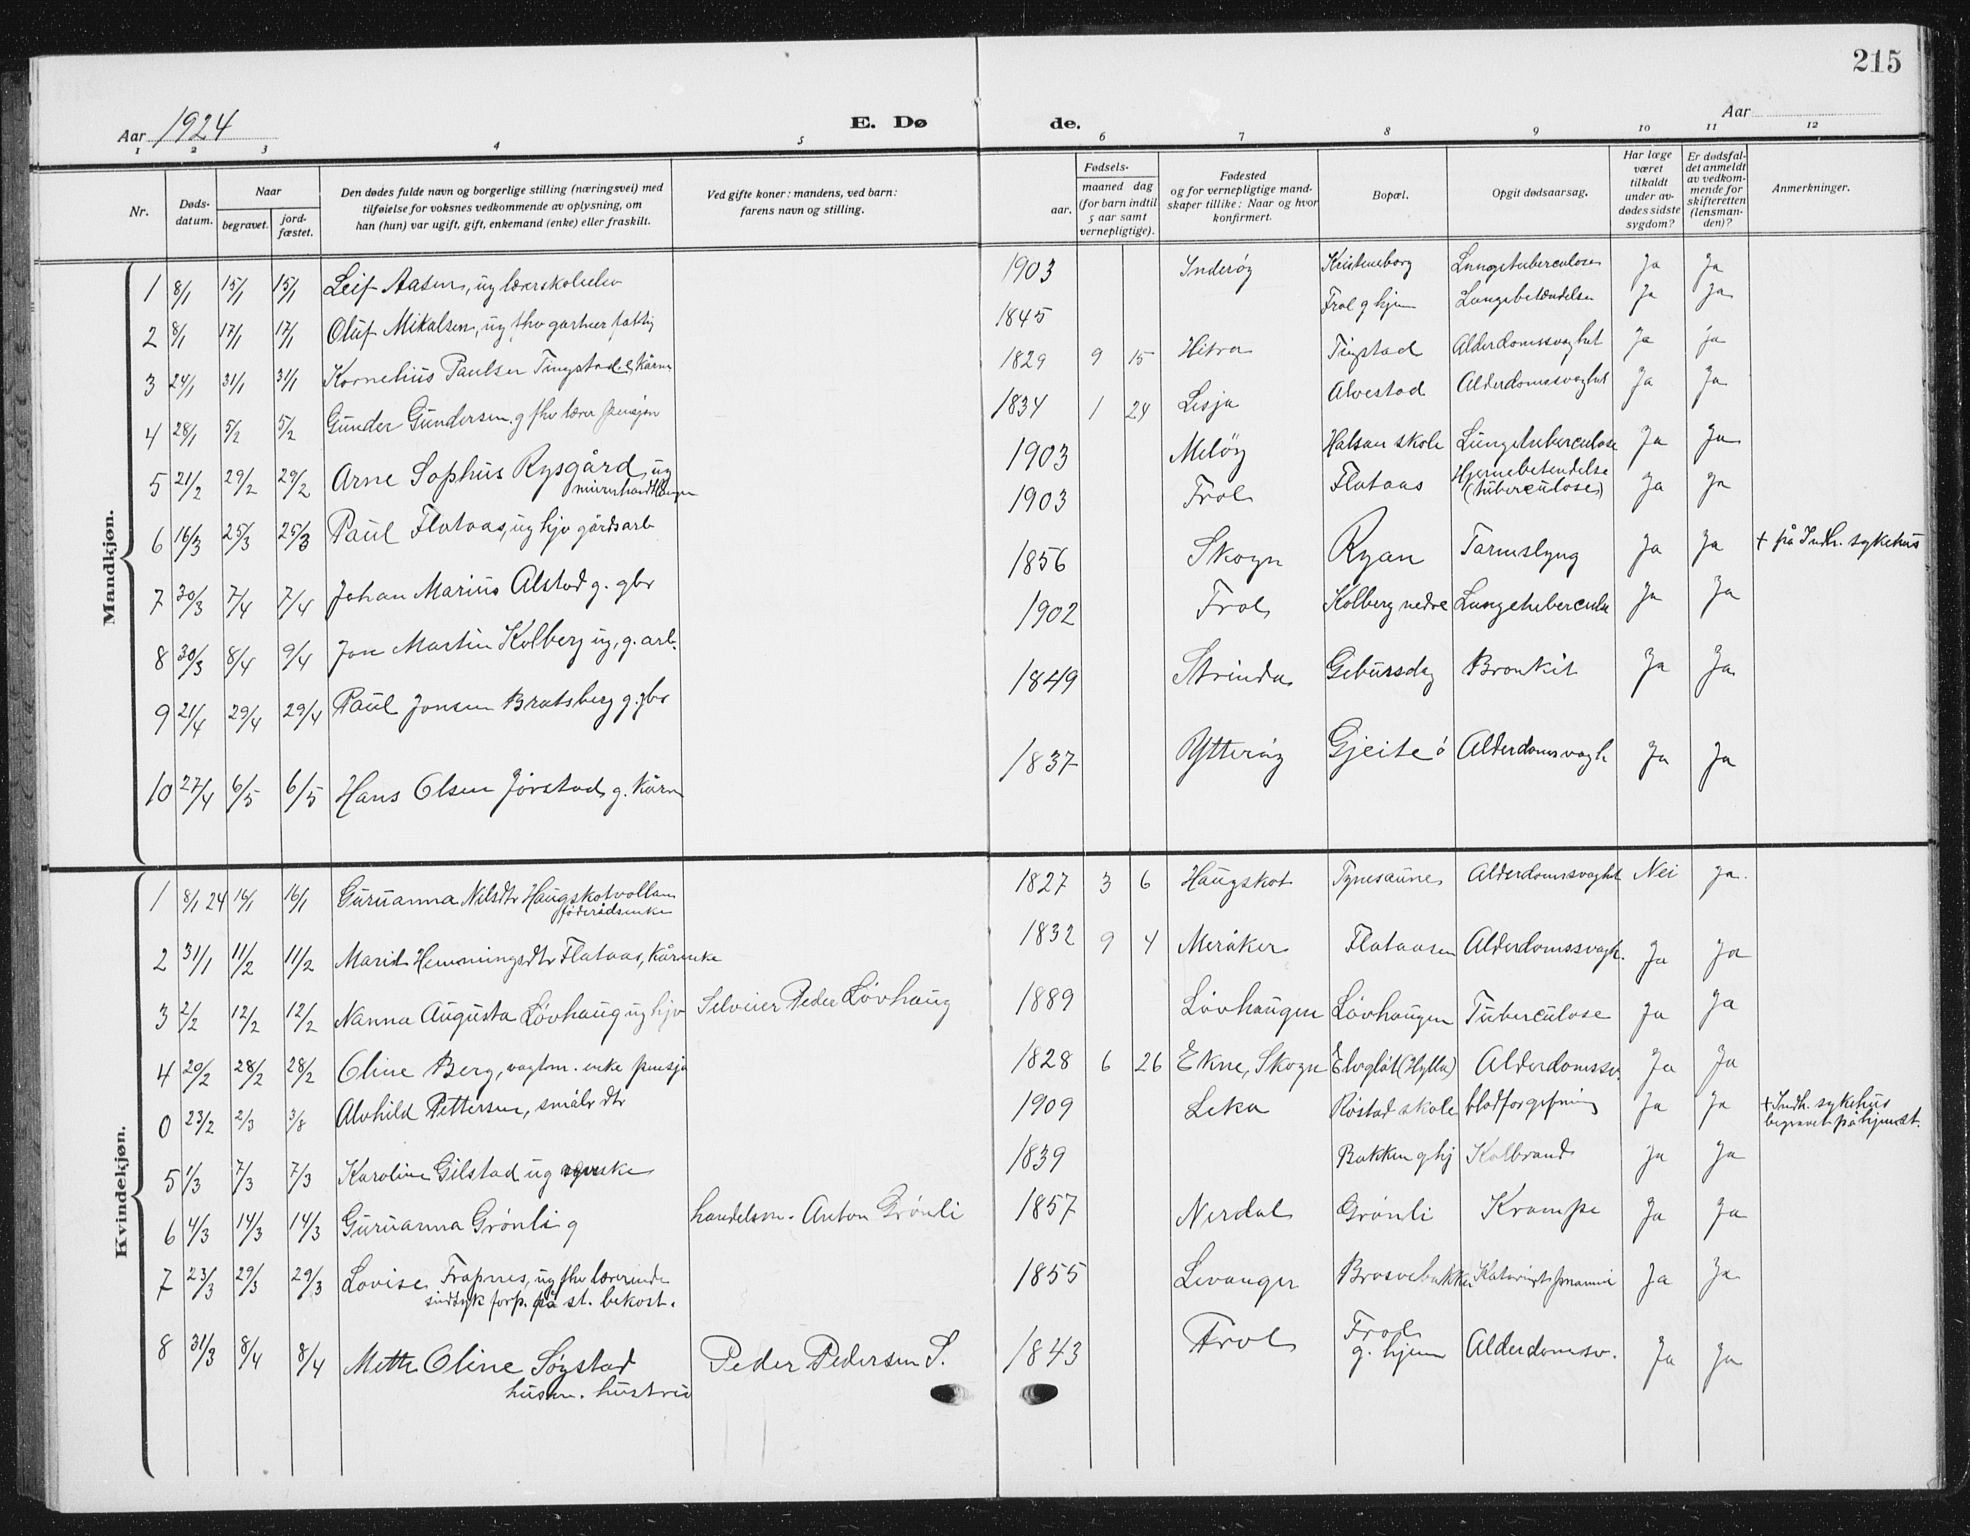 215
Aar 1924
E. Dø de.
Aar
1 2 3 4 5 6 7 8 9 10 11 12
Nr.
Døds-
datum.
Naar
begravet.
jord-
fæstet.
Den dødes fulde navn og borgerlige stilling (næringsvei) med
tilføielse for voksnes vedkommende av oplysning, om
han (hun) var ugift, gift, enkemand (enke) eller fraskilt.
Ved gifte koner: mandens, ved barn:
farens navn og stilling.
Fødsels-
aar.
maaned dag
(for barn indtil
5 aar samt
vernepligtige).
Fødested
og for vernepligtige mand-
skaper tillike: Naar og hvor
konfirmert.
Bopæl.
Opgit dødsaarsag.
Har læge
været
tilkaldt
under av-
dødes sidste
sygdom?
Er dødsfal-
det anmeldt
av vedkom-
mende for
skifteretten
(lensman-
den)?
Anmerkninger.
Mandkjøn.
1 8/1 15/1 15/1 Leif Aasen, ug lærerskoleelev 1903 Inderøy Kristensborg Lungetuberculose Ja Ja
2 8/1 17/1 17/1 Oluf Mikalsen, ug fhv gartner fattig 1845 Frol g hjem Lungebetændelse Ja Ja
3 24/1 31/1 31/1 Kornelius Paulsen Tingstad e. kårm 1829 9 15 Hitra Tingstad Alderdomssvaghet Ja ja
4 28/1 5/2 5/2 Gunder Gundersen g fhv lærer pensjon 1834 1 24 Lesja Alvestad Alderdomssvaghet Ja Ja
5 21/2 29/2 29/2 Arne Sophus Rysgård, ug 1903 Meløy Halsan skole Lungetuberculose Ja Ja
6 16/3 25/3 25/3 Paul Flataas, ug hjv gårdsarb 1903 Frol Flataas Hjernebetendelse
(tuberculose) Ja Ja
7 30/3 7/4 7/4 Johan Marius Alstad g. gbr 1856 Skogn Ryan Tarmslyng Ja Ja + på Indh. sykehus
8 30/3 8/4 9/4 Jon Martin Kolberg ug, g. arb. 1902 Frol Kolberg nedre Lungetubercula Ja Ja
9 21/4 29/4 29/4 Paul Jonsen Bratsberg g. gbr 1849 Strinda Gebursdag Bronkit Ja Ja
10 27/4 6/5 6/5 Hans Olsen Jørstad g. kårm 1837 Ytterøy Gjeite ø Alderdomsvagh Ja Ja
Kvindekjøn.
1 8/1 24 16/1 16/1 Guruanna Nilsdtr Haugskotvollan
føderådsenke 1827 3 6 Haugskot Tynesaune Alderdomssvaghet Nei Ja.
2 31/1 11/2 11/2 Marit Hemmingsdtr Flataas, kårenke 1832 9 4 Meråker Flataasen Alderdomssvagh. Ja Ja
3 2/2 12/2 12/2 Nanna Augusta Løvhaug ug hjv Selveier Peder Løvhaug 1889 Løvhaugen Løvhaugen Tuberculose Ja Ja
4 20/2 28/2 28/2 Oline Berg, vagtm. enke pensjo 1828 6 26 Ekne, Skogn Elvgløt (Hylla) Alderdomssv. Ja Ja
0 23/2 2/3 3/8 Alvhild Pettersen, småbr dtr 1909 Leka Røstad skole blodforgifning Ja Ja + Indh. sykehus
begravet på hjemst.
5 1/3 7/3 7/3 Karoline Gilstad ug 1839 Bakken g hj Kolbrand Ja Ja
6 4/3 14/3 14/3 Guruanna Grønli g handelsm. Anton Grønli 1857 Nerdal Grønli Krampe Ja Ja
7 23/3 29/3 29/3 Lovise Trapnes, ug fhv lærerinde
sindsyk forp. på st. bekost. 1855 Levanger Brusvebakken Ja Ja
8 31/3 8/4 8/4 Mette Oline Sogstad
husm. hustru Peder Pedersen S. 1843 Frol Frol
g. hjem Alderdomsv. Ja Ja